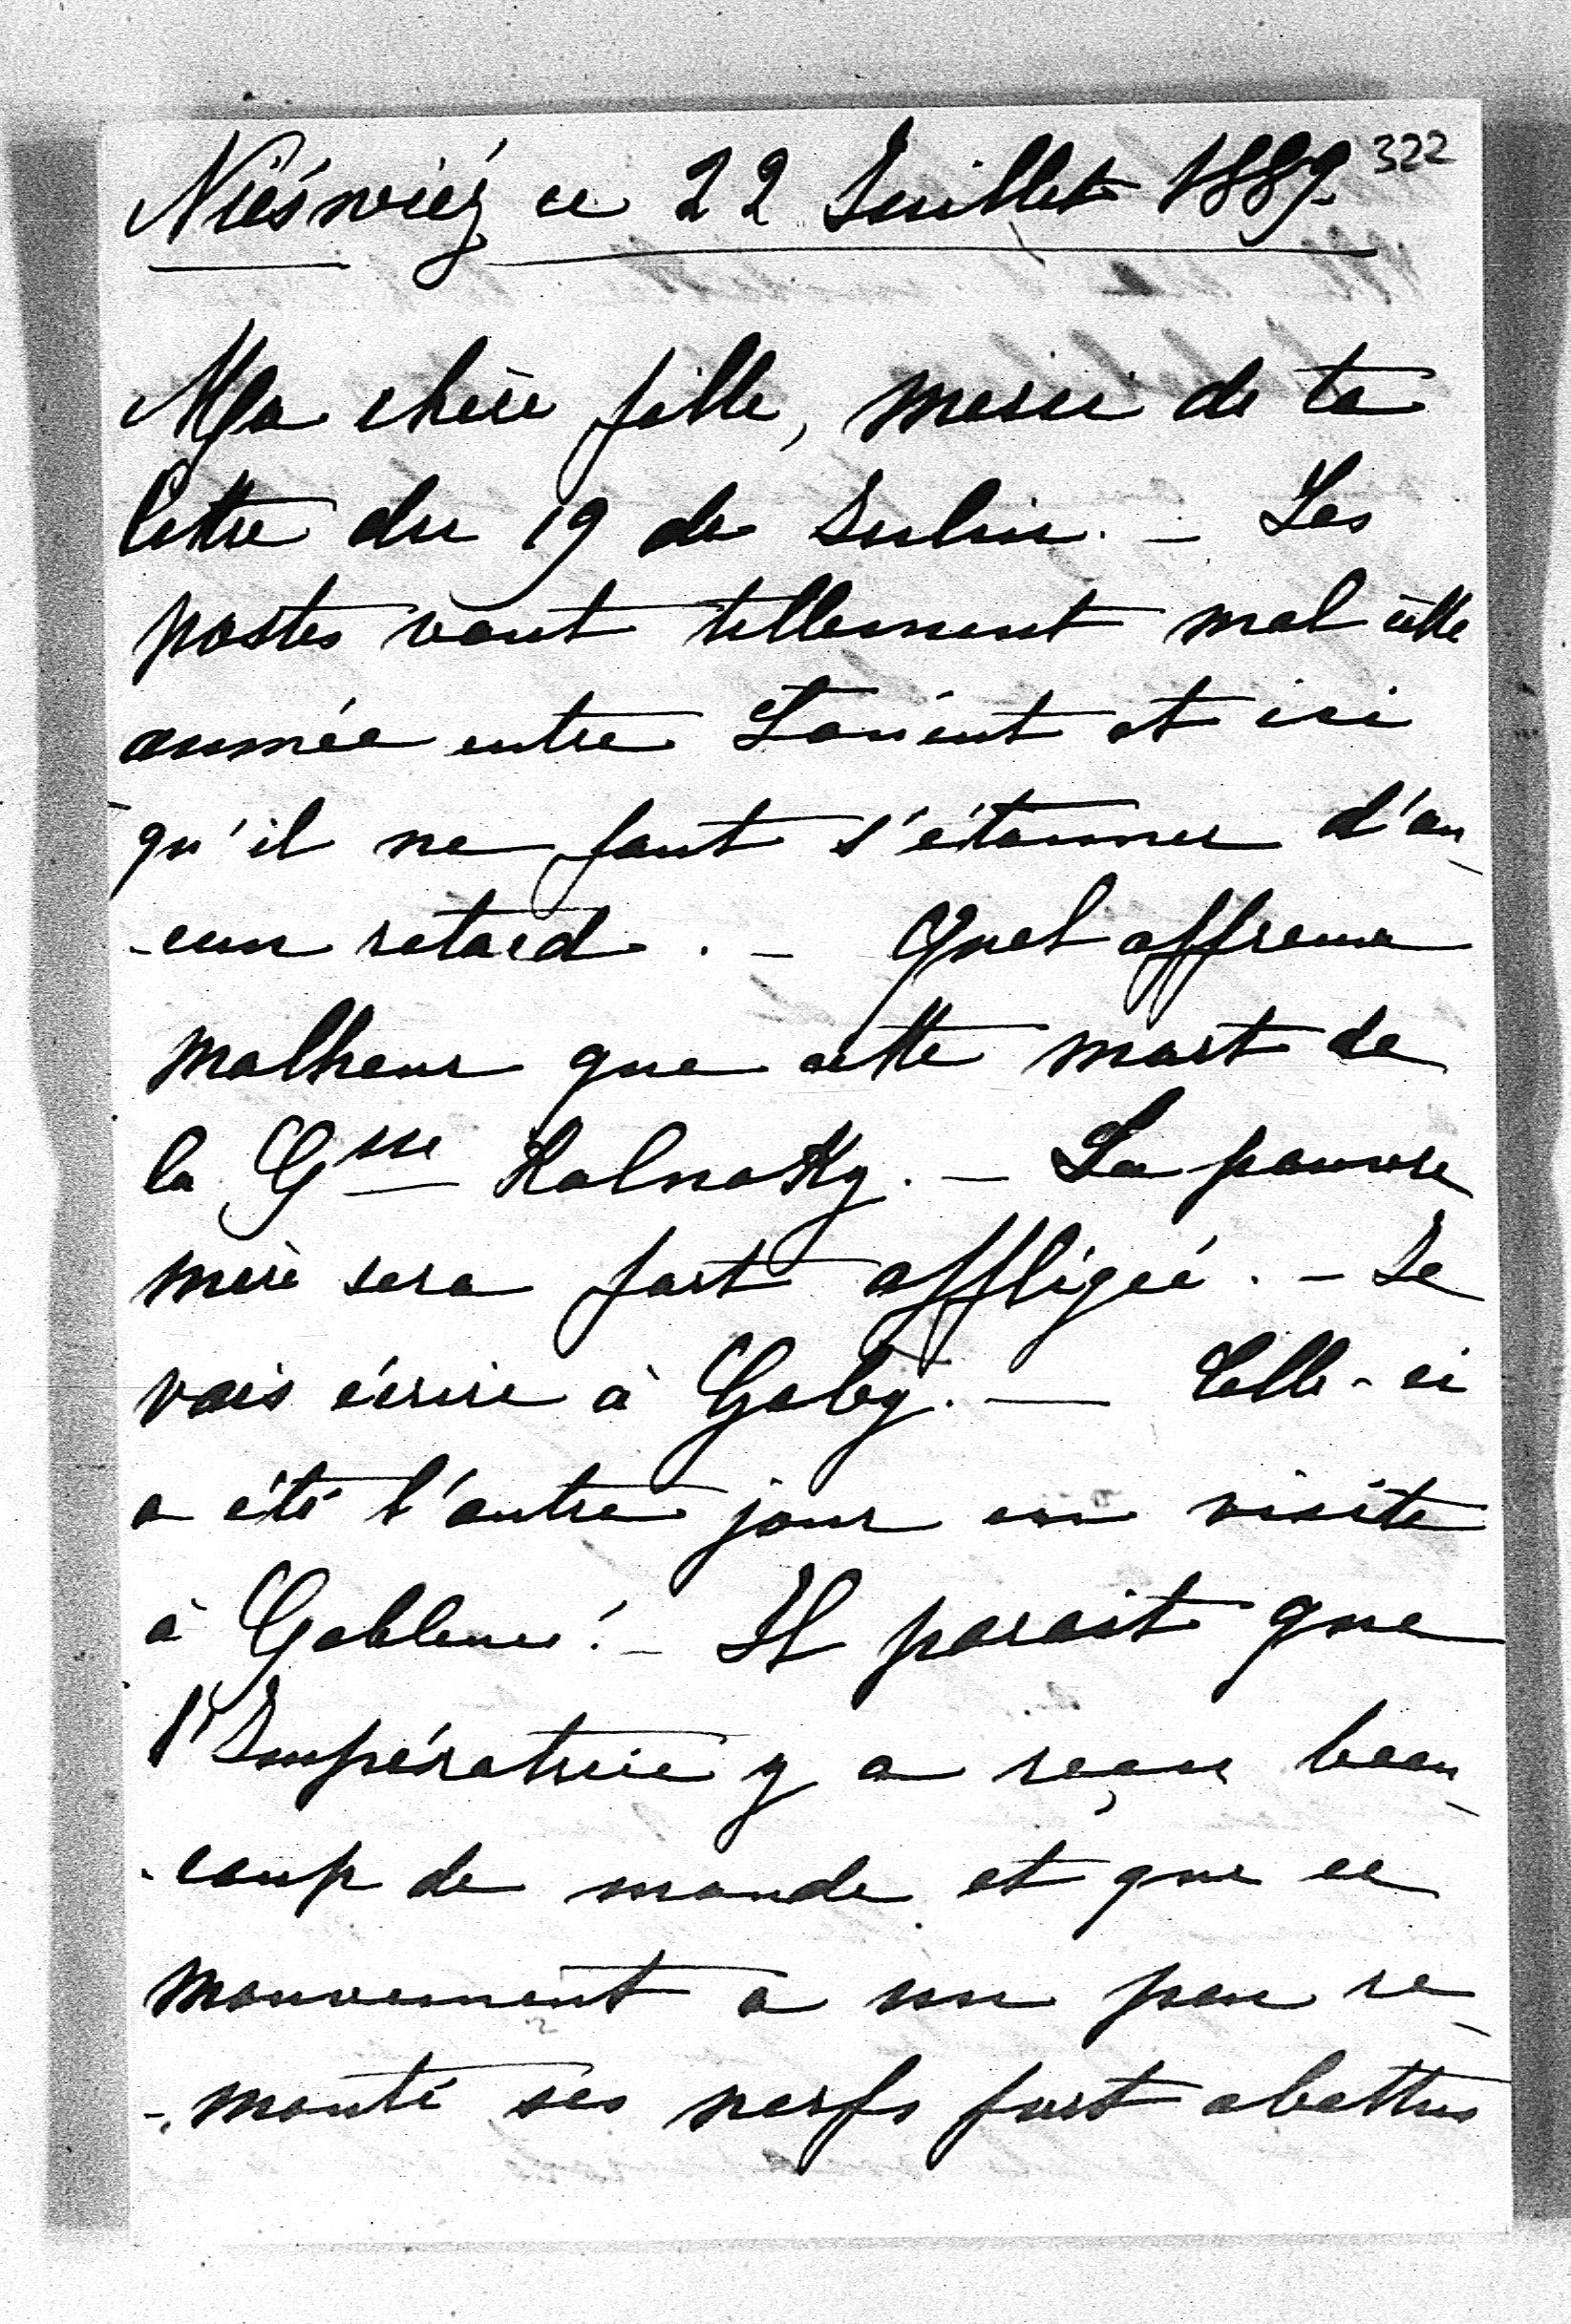 322
Nieśwież ce 22 Juillet 1889.
Ma chère fille, merci de ta
lettre du 19 de Julin. – Les
postes vont tellement mal cette
année entre Lancut et ici
qu'il ne faut s'étonner d'au-
-cun retard. – Quel affreux
malheur que cette mort de
la Csse Kalnoky. – La pauvre
mère sera fort affligée. – Je
vais écrire à Gaby. — Celle-ci
a été l'autre jour en visite
à Coblence. – Il parait que
l'Impératrice y a reçu beau-
-coup de monde et que ce
mouvement a un peu re-
-monté ses nerfs fort abattus